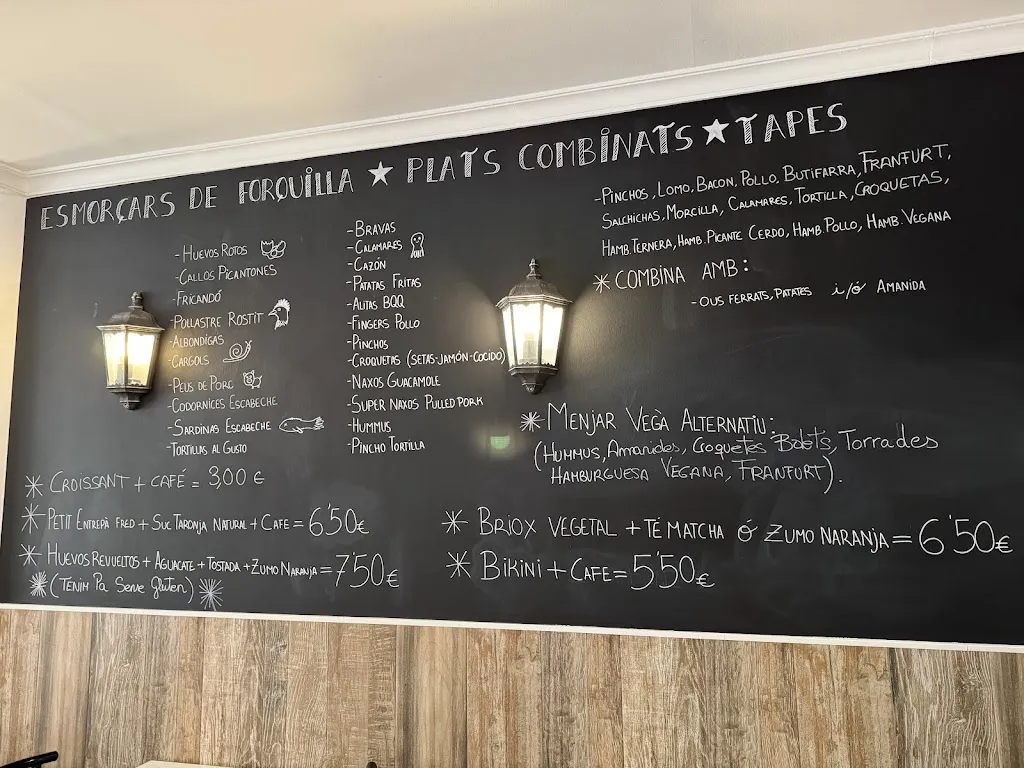 ESMORÇARS DE FORQUILLA ★ PLATS COMBINATS ★ TAPES
- HUEVOS ROTOS
- CALLOS PICANTONES
- FRICANDÓ
- POLLASTRE ROSTIT
- ALBONDIGAS
- CARGOLS
- PEUS DE PORC
- CODORNICES ESCABECHE
- SARDINAS ESCABECHE
- TORTILLAS AL GUSTO
- BRAVAS
- CALAMARES
- CAZÓN
- PATATAS FRITAS
- ALITAS BQQ
- FINGERS POLLO
- PINCHOS
- CROQUETAS (SETAS-JAMÓN-COCIDO)
- NAXOS GUACAMOLE
- SUPER NAXOS PULLED PORK
- HUMMUS
- PINCHO TORTILLA
- PINCHOS, LOMO, BACON, POLLO, BUTIFARRA, FRANFURT,
SALCHICHAS, MORCILLA, CALAMARES, TORTILLA, CROQUETAS,
HAMB. TERNERA, HAMB. PICANTE CERDO, HAMB. POLLO, HAMB. VEGANA
* COMBINA AMB:
- OUS FERRATS, PATATES i/ó AMANIDA
* MENJAR VEGÀ ALTERNATIU:
(HUMMUS, Amanides, Croquetes Bolets, Torrades
HAMBURGUESA VEGANA, FRANFURT).
* CROISSANT + CAFÉ = 3,00 €
* PETIT ENTREPÀ FRED + SUC TARONJA NATURAL + CAFE = 6'50€
* HUEVOS REVUELTOS + AGUACATE + TOSTADA + ZUMO NARANJA = 7'50€
* (TENIM Pa Sense gluten) *
* BRIOX VEGETAL + TÉ MATCHA Ó ZUMO NARANJA = 6'50€
* BIKINI + CAFE = 5'50€